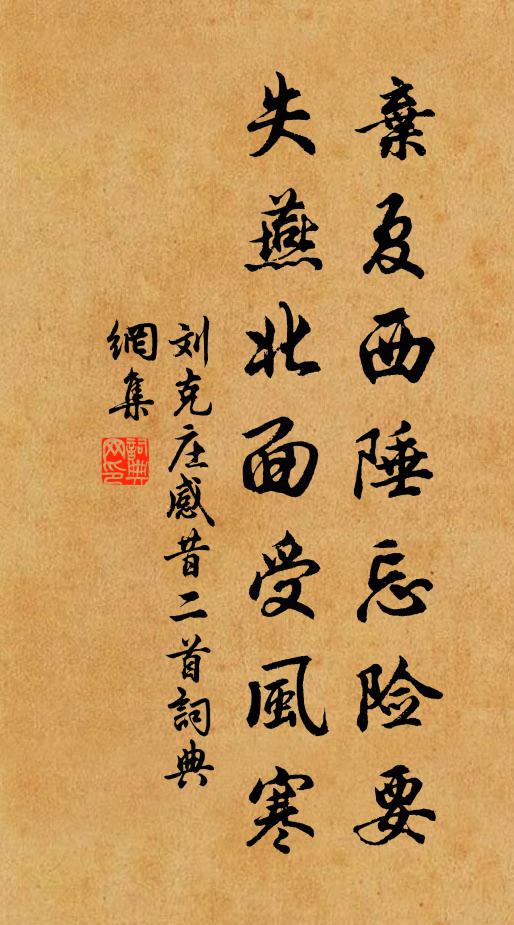 棄夏西陲忘险要
失燕北面受風寒
刘克庄感昔二首詞典
網集
詞典
网印